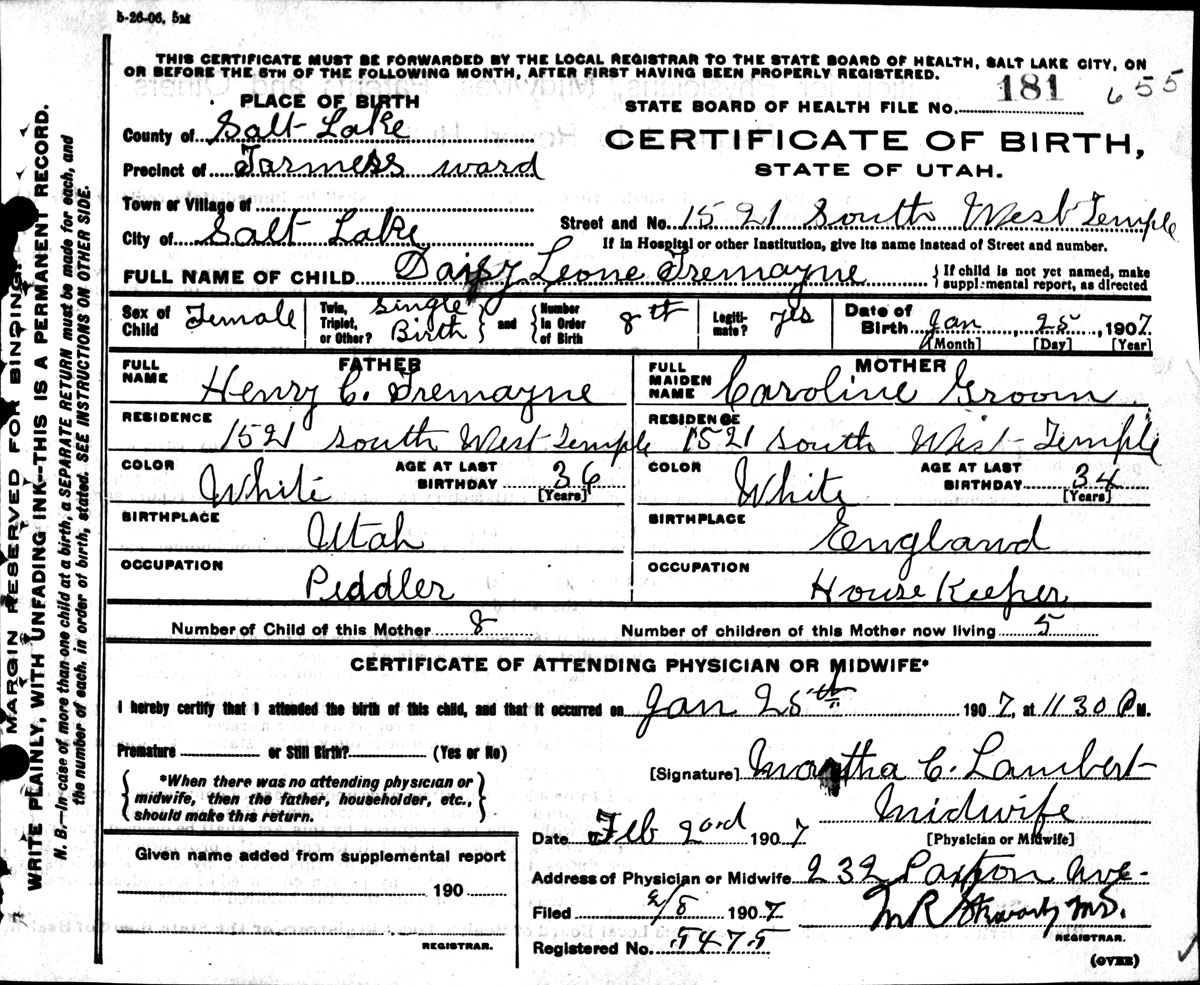 5-26-06, 5M
THIS CERTIFICATE MUST BE FORWARDED BY THE LOCAL REGISTRAR TO THE STATE BOARD OF HEALTH, SALT LAKE CITY, ON
OR BEFORE THE 5TH OF THE FOLLOWING MONTH, AFTER FIRST HAVING BEEN PROPERLY REGISTERED.
PLACE OF BIRTH
STATE BOARD OF HEALTH FILE NO. 181 655
County of Salt Lake
CERTIFICATE OF BIRTH,
Precinct of Farmers ward
STATE OF UTAH.
Town or Village of
Street and No. 1521 South West Temple
City of Salt Lake
If in Hospital or other Institution, give its name instead of Street and number.
FULL NAME OF CHILD Daisy Leone Tremayne { If child is not yet named, make
supplemental report, as directed
Sex of Child Female
Twin, Triplet, or Other? Single Birth } and { Number in Order of Birth 8th
Legitimate? Yes
Date of Birth Jan 25, 1907
[Month] [Day] [Year]
FATHER
FULL NAME Henry C. Tremayne
RESIDENCE 1521 South West Temple
COLOR White AGE AT LAST BIRTHDAY 36
[Years]
BIRTHPLACE Utah
OCCUPATION Peddler
MOTHER
FULL MAIDEN NAME Caroline Groom
RESIDENCE 1521 South West Temple
COLOR White AGE AT LAST BIRTHDAY 34
[Years]
BIRTHPLACE England
OCCUPATION House Keeper
Number of Child of this Mother 8 Number of children of this Mother now living 5
CERTIFICATE OF ATTENDING PHYSICIAN OR MIDWIFE*
I hereby certify that I attended the birth of this child, and that it occurred on Jan 25th 1907, at 11 30 P M.
Premature or Still Birth? (Yes or No)
[Signature] Martha C. Lambert
{ *When there was no attending physician or
midwife, then the father, householder, etc.,
should make this return. }
Midwife
Date Feb 2ord 1907 [Physician or Midwife]
Given name added from supplemental report
190
REGISTRAR.
Address of Physician or Midwife 232 Paxton Ave.
Filed 2/8 1907 M R Stewart M.D.
REGISTRAR.
Registered No. 5475
(OVER)
MARGIN RESERVED FOR BINDING.
WRITE PLAINLY, WITH UNFADING INK--THIS IS A PERMANENT RECORD.
N. B.--In case of more than one child at a birth, a SEPARATE RETURN must be made for each, and
the number of each, in order of birth, stated. SEE INSTRUCTIONS ON OTHER SIDE.